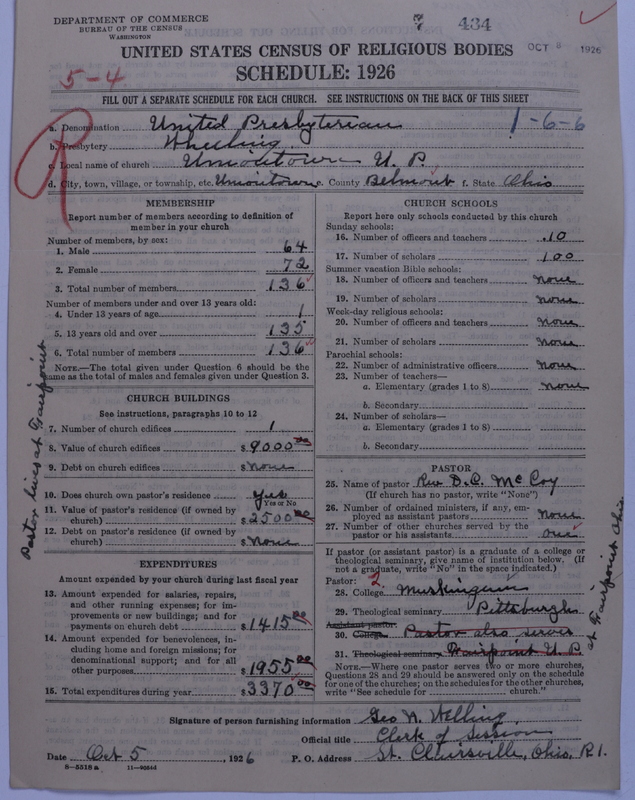 DEPARTMENT OF COMMERCE
BUREAU OF THE CENSUS
WASHINGTON
434
OCT 8 1926
UNITED STATES CENSUS OF RELIGIOUS BODIES
SCHEDULE: 1926
5-4
FILL OUT A SEPARATE SCHEDULE FOR EACH CHURCH. SEE INSTRUCTIONS ON THE BACK OF THIS SHEET
R
1-6-6
a. Denomination United Presbyterian
b. Presbytery Wheeling
c. Local name of church Uniontown U. P.
d. City, town, village, or township, etc. Uniontown e. County Belmont f. State Ohio
MEMBERSHIP
Report number of members according to definition of member in your church
Number of members, by sex:
1. Male 64
2. Female 72
3. Total number of members 136
Number of members under and over 13 years old:
4. Under 13 years of age 1
5. 13 years old and over 135
6. Total number of members 136
NOTE.—The total given under Question 6 should be the
same as the total of males and females given under Question 3.
CHURCH BUILDINGS
See instructions, paragraphs 10 to 12
7. Number of church edifices 1
8. Value of church edifices $9000.00
9. Debt on church edifices $None
10. Does church own pastor's residence Yes
Yes or No
11. Value of pastor's residence (if owned by
church) $2500.00
12. Debt on pastor's residence (if owned by
church) $None
Pastor lives at Fairpoint
EXPENDITURES
Amount expended by your church during last fiscal year
13. Amount expended for salaries, repairs,
and other running expenses; for im-
provements or new buildings; and for
payments on church debt $1415.00
14. Amount expended for benevolences, in-
cluding home and foreign missions; for
denominational support; and for all
other purposes $1955.00
15. Total expenditures during year $3370.00
CHURCH SCHOOLS
Report here only schools conducted by this church
Sunday schools:
16. Number of officers and teachers 10
17. Number of scholars 100
Summer vacation Bible schools:
18. Number of officers and teachers none
19. Number of scholars none
Week-day religious schools:
20. Number of officers and teachers None
21. Number of scholars None
Parochial schools:
22. Number of administrative officers None
23. Number of teachers—
a. Elementary (grades 1 to 8) none
b. Secondary
24. Number of scholars—
a. Elementary (grades 1 to 8)
b. Secondary
PASTOR
25. Name of pastor Rev D. C. McCoy
(If church has no pastor, write "None")
26. Number of ordained ministers, if any, em-
ployed as assistant pastors None
27. Number of other churches served by the
pastor or his assistants one
If pastor (or assistant pastor) is a graduate of a college or
theological seminary, give name of institution below. (If
not a graduate, write "No" in the space indicated.)
Pastor: 2
28. College Muskingum
29. Theological seminary Pittsburgh
Assistant pastor:
30. College Pastor also serves
31. Theological seminary Fairpoint U. P.
at Fairpoint Ohio
NOTE.—Where one pastor serves two or more churches,
Questions 28 and 29 should be answered only on the schedule
for one of the churches; on the schedules for the other churches,
write "See schedule for church."
Signature of person furnishing information Geo N. Welling
Official title Clerk of Session
Date Oct 5, 1926 P. O. Address St. Clairsville, Ohio, R 1.
8-5518a